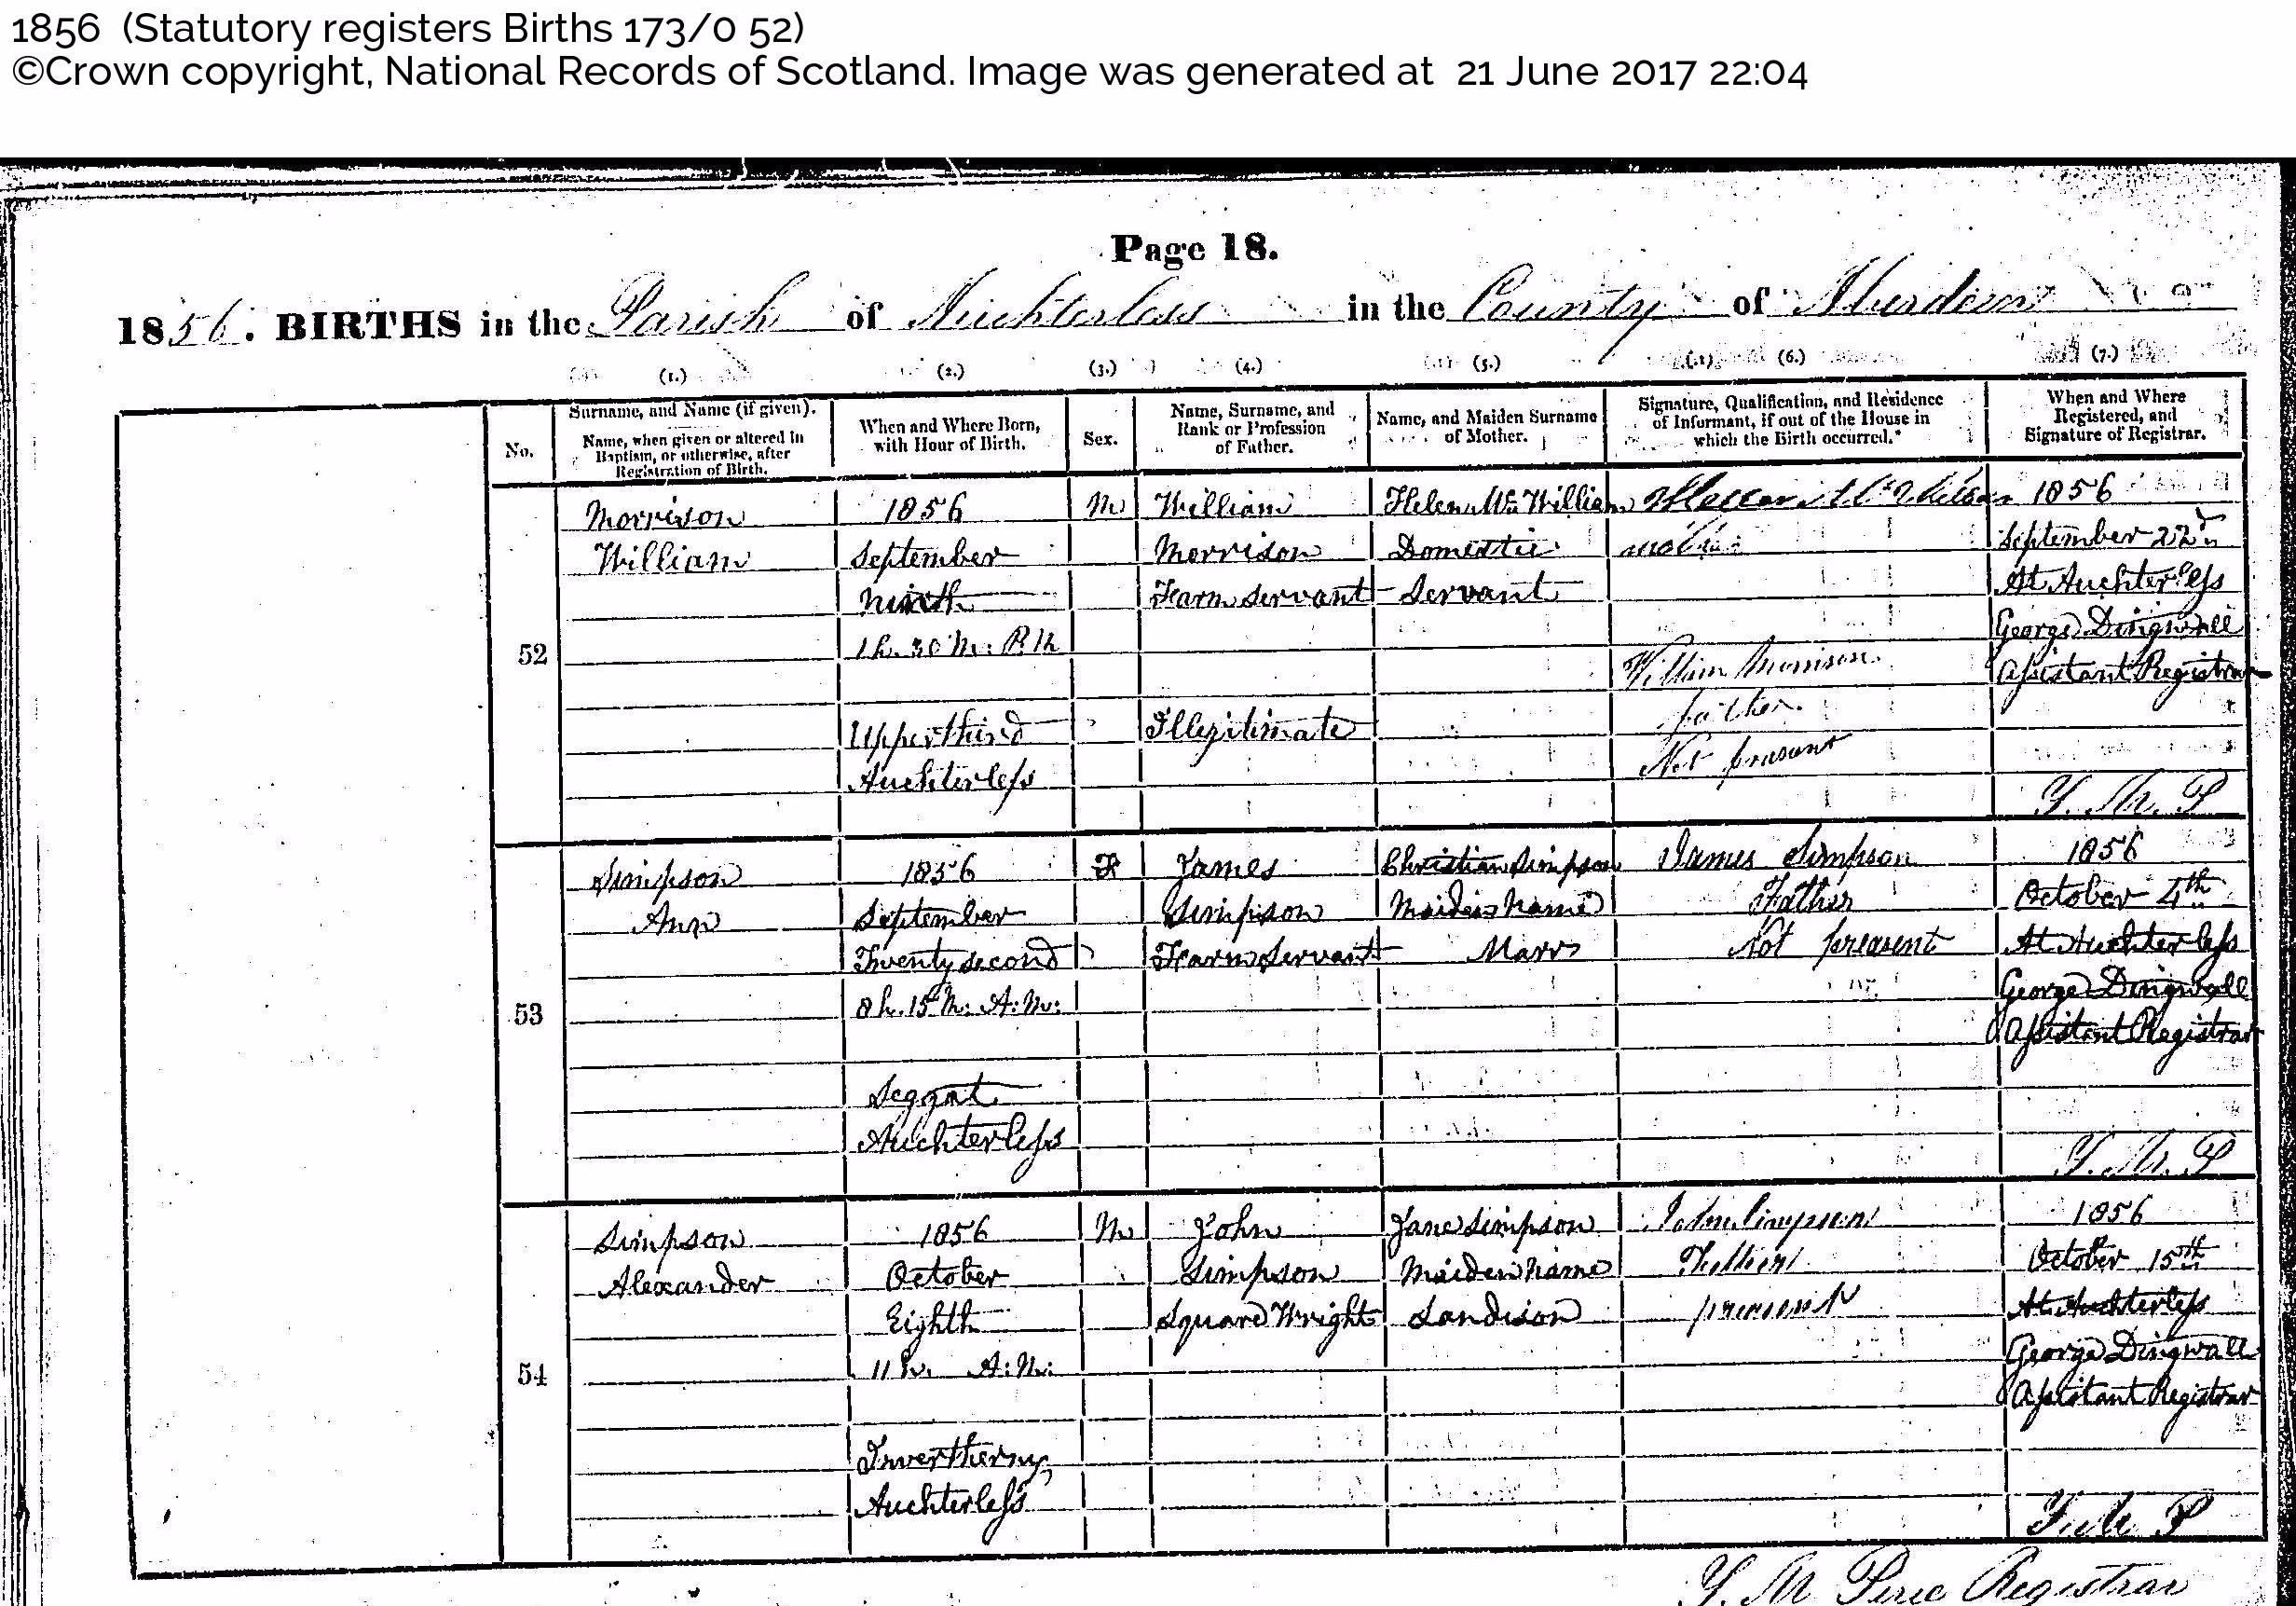 1856 (Statutory registers Births 173/0 52)
©Crown copyright, National Records of Scotland. Image was generated at 21 June 2017 22:04
Page 18.
1856. BIRTHS in the Parish of Auchterless in the County of Aberdeen
(1.) (2.) (3.) (4.) (5.) (6.) (7.)
No.
Surname, and Name (if given).
Name, when given or altered in
Baptism, or otherwise, after
Registration of Birth.
When and Where Born,
with Hour of Birth.
Sex.
Name, Surname, and
Rank or Profession
of Father.
Name, and Maiden Surname
of Mother.
Signature, Qualification, and Residence
of Informant, if out of the House in
which the Birth occurred.*
When and Where
Registered, and
Signature of Registrar.
52
Morrison
William
1856
September
Ninth
1 h. 30 M. P.M
Upperthird
Auchterless
M
William
Morrison
Farm Servant
Illegitimate
Helen Mc William
Domestic
Servant
mother
William Morrison
father.
Not present
1856
September 22d
At Auchterless
George Dingwall
Assistant Registrar
Y. M. P
53
Simpson
Ann
1856
September
Twenty second
8 h. 15 M. A.M.
Seggat
Auchterless
F
James
Simpson
Farm Servant
Christian Simpson
Maiden Name
Marr
James Simpson
Father
Not preasent
1856
October 4th
At Auchterless
George Dingwall
Assistant Registrar
Y. M. P
54
Simpson
Alexander
1856
October
Eighth
11 h. A.M.
Invertherny
Auchterless
M
John
Simpson
Square Wright
Jane Simpson
Maiden Name
Sandison
John Simpson
Father
present
1856
October 15th
At Auchterless
George Dingwall
Assistant Registrar
Y. M. P
Y. M. Registrar